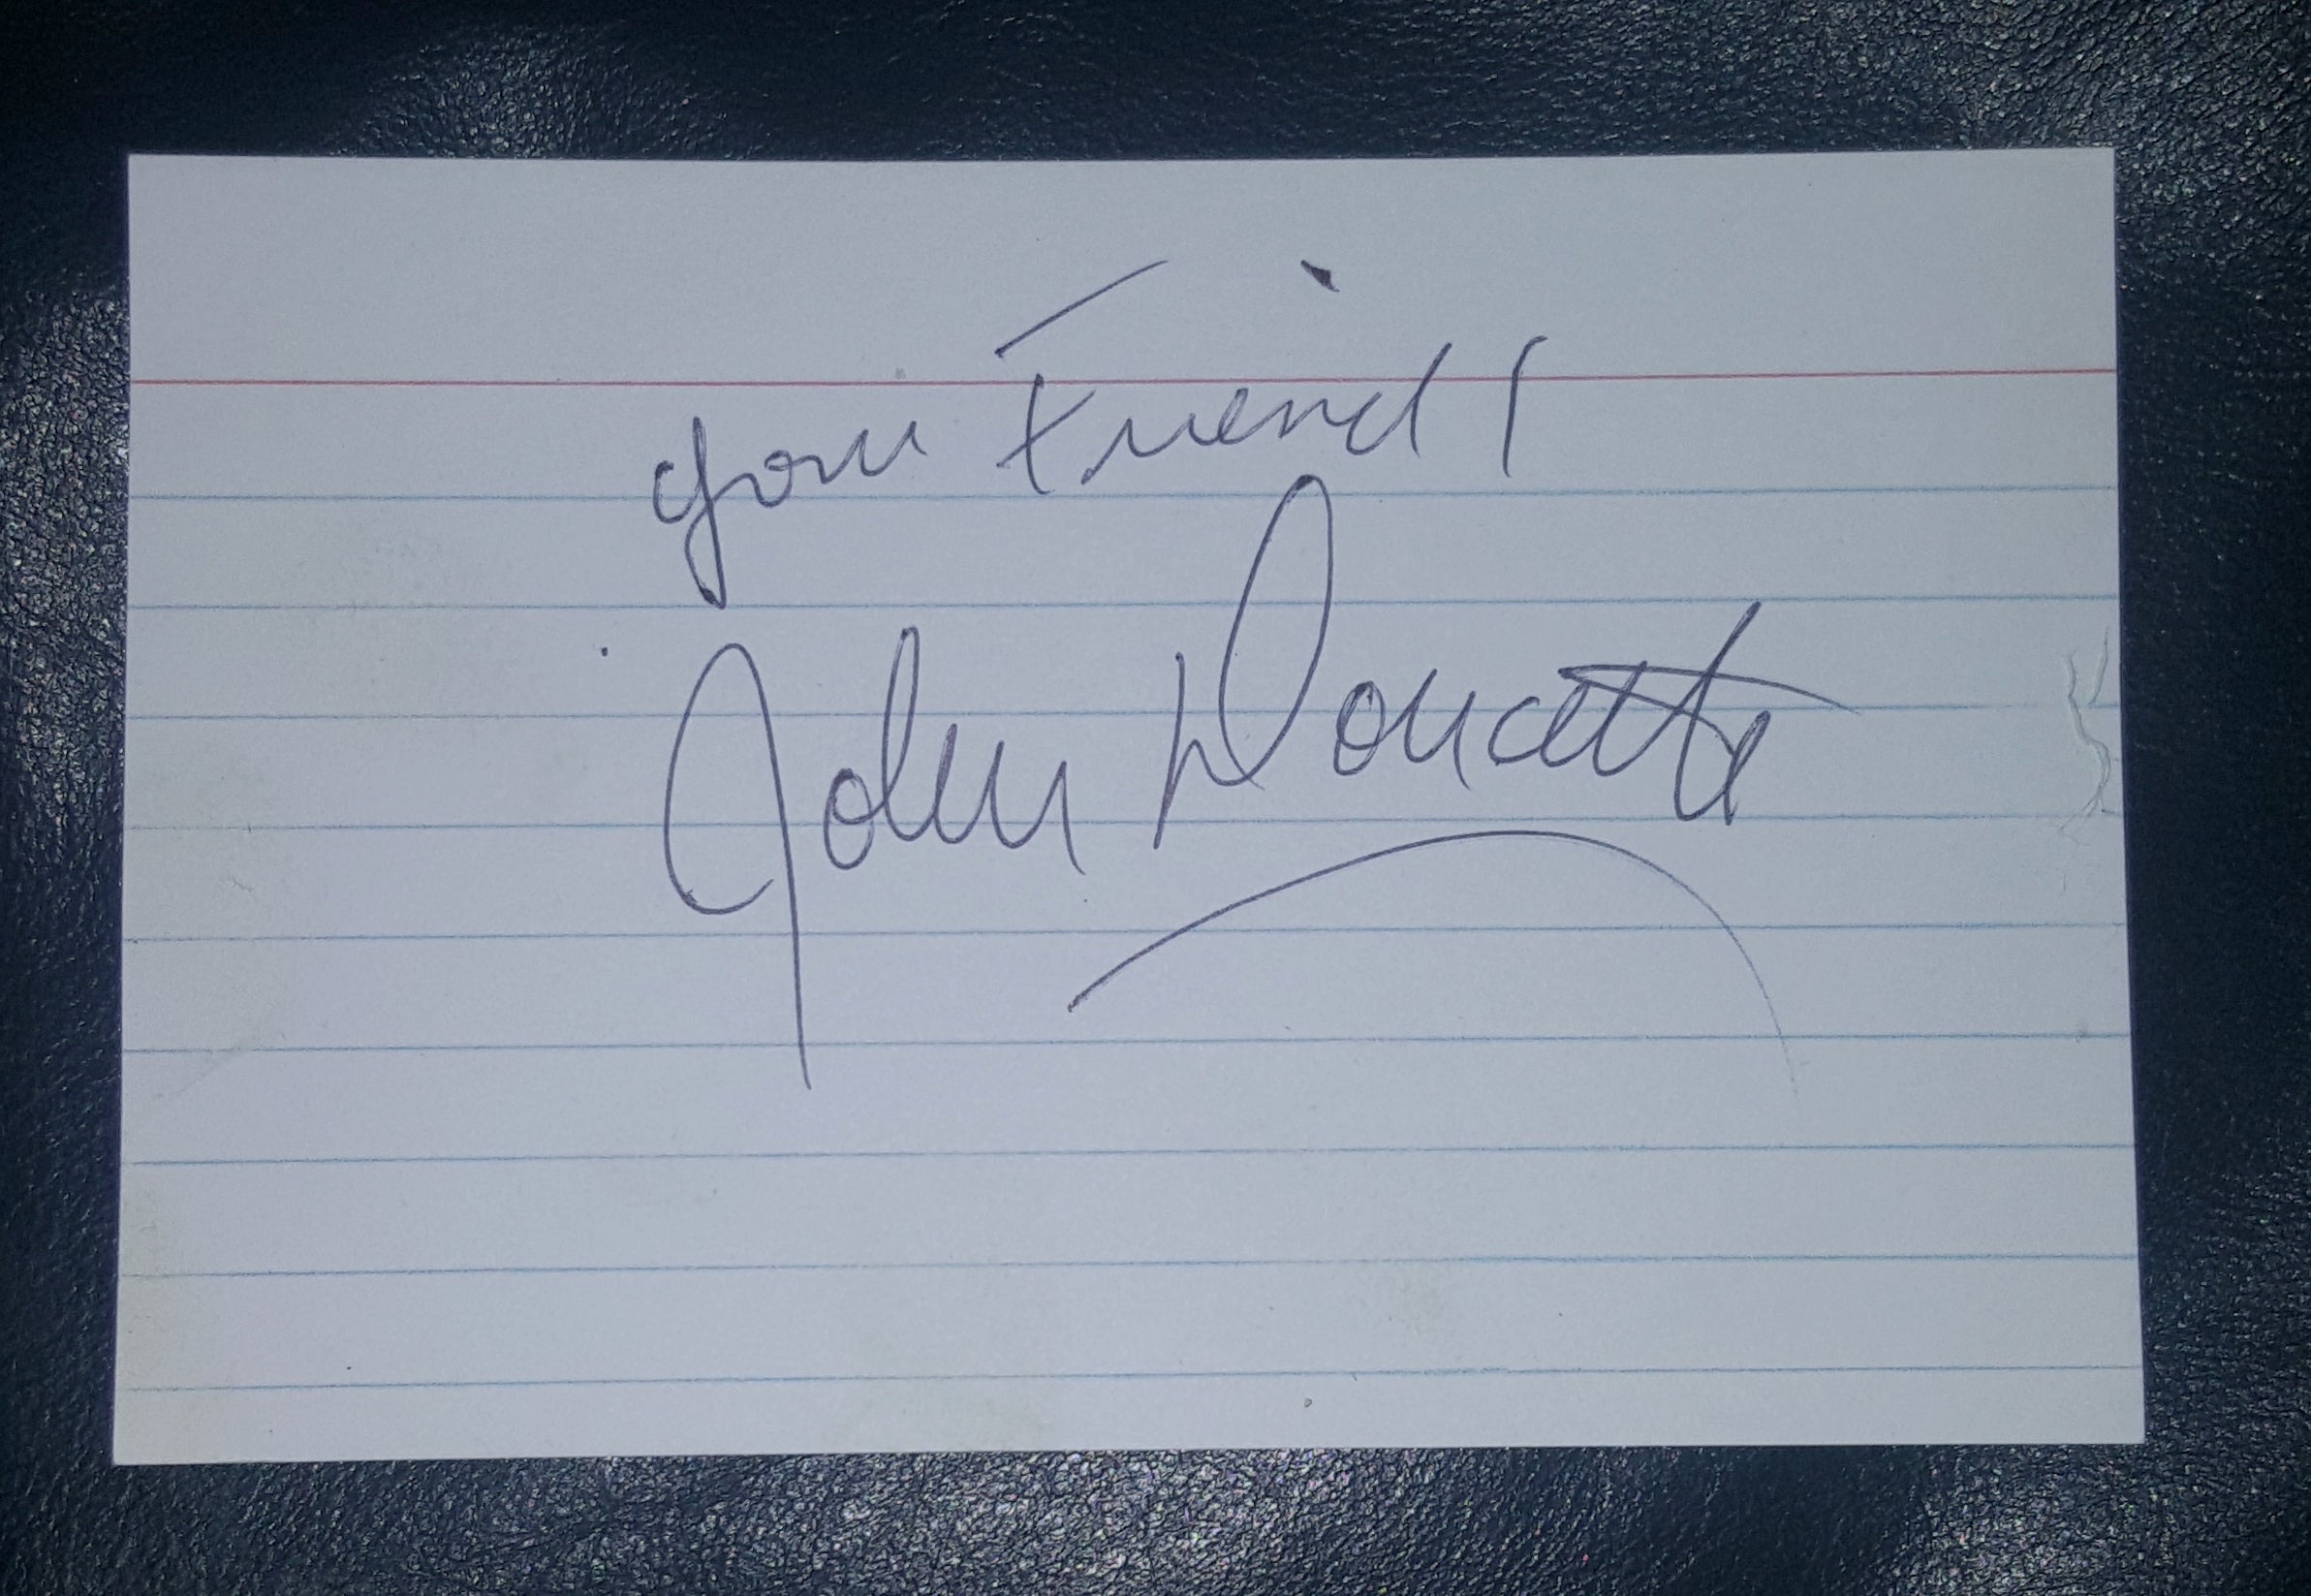 your Friend,
John Doucette